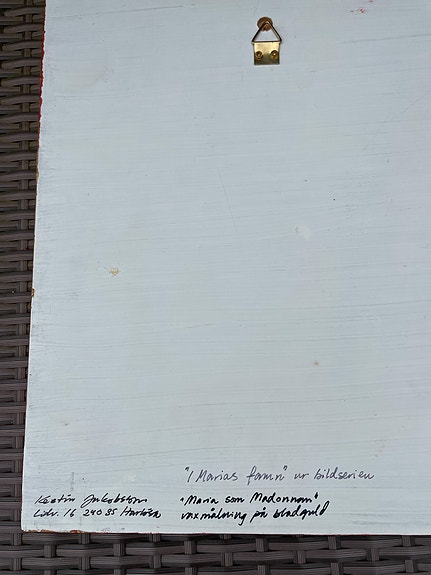 "I Marias famn" ur bildserien
"Maria som Madonnan"
vaxmålning på bladguld
Kerstin Jakobsson
16 240 35 Harlösa